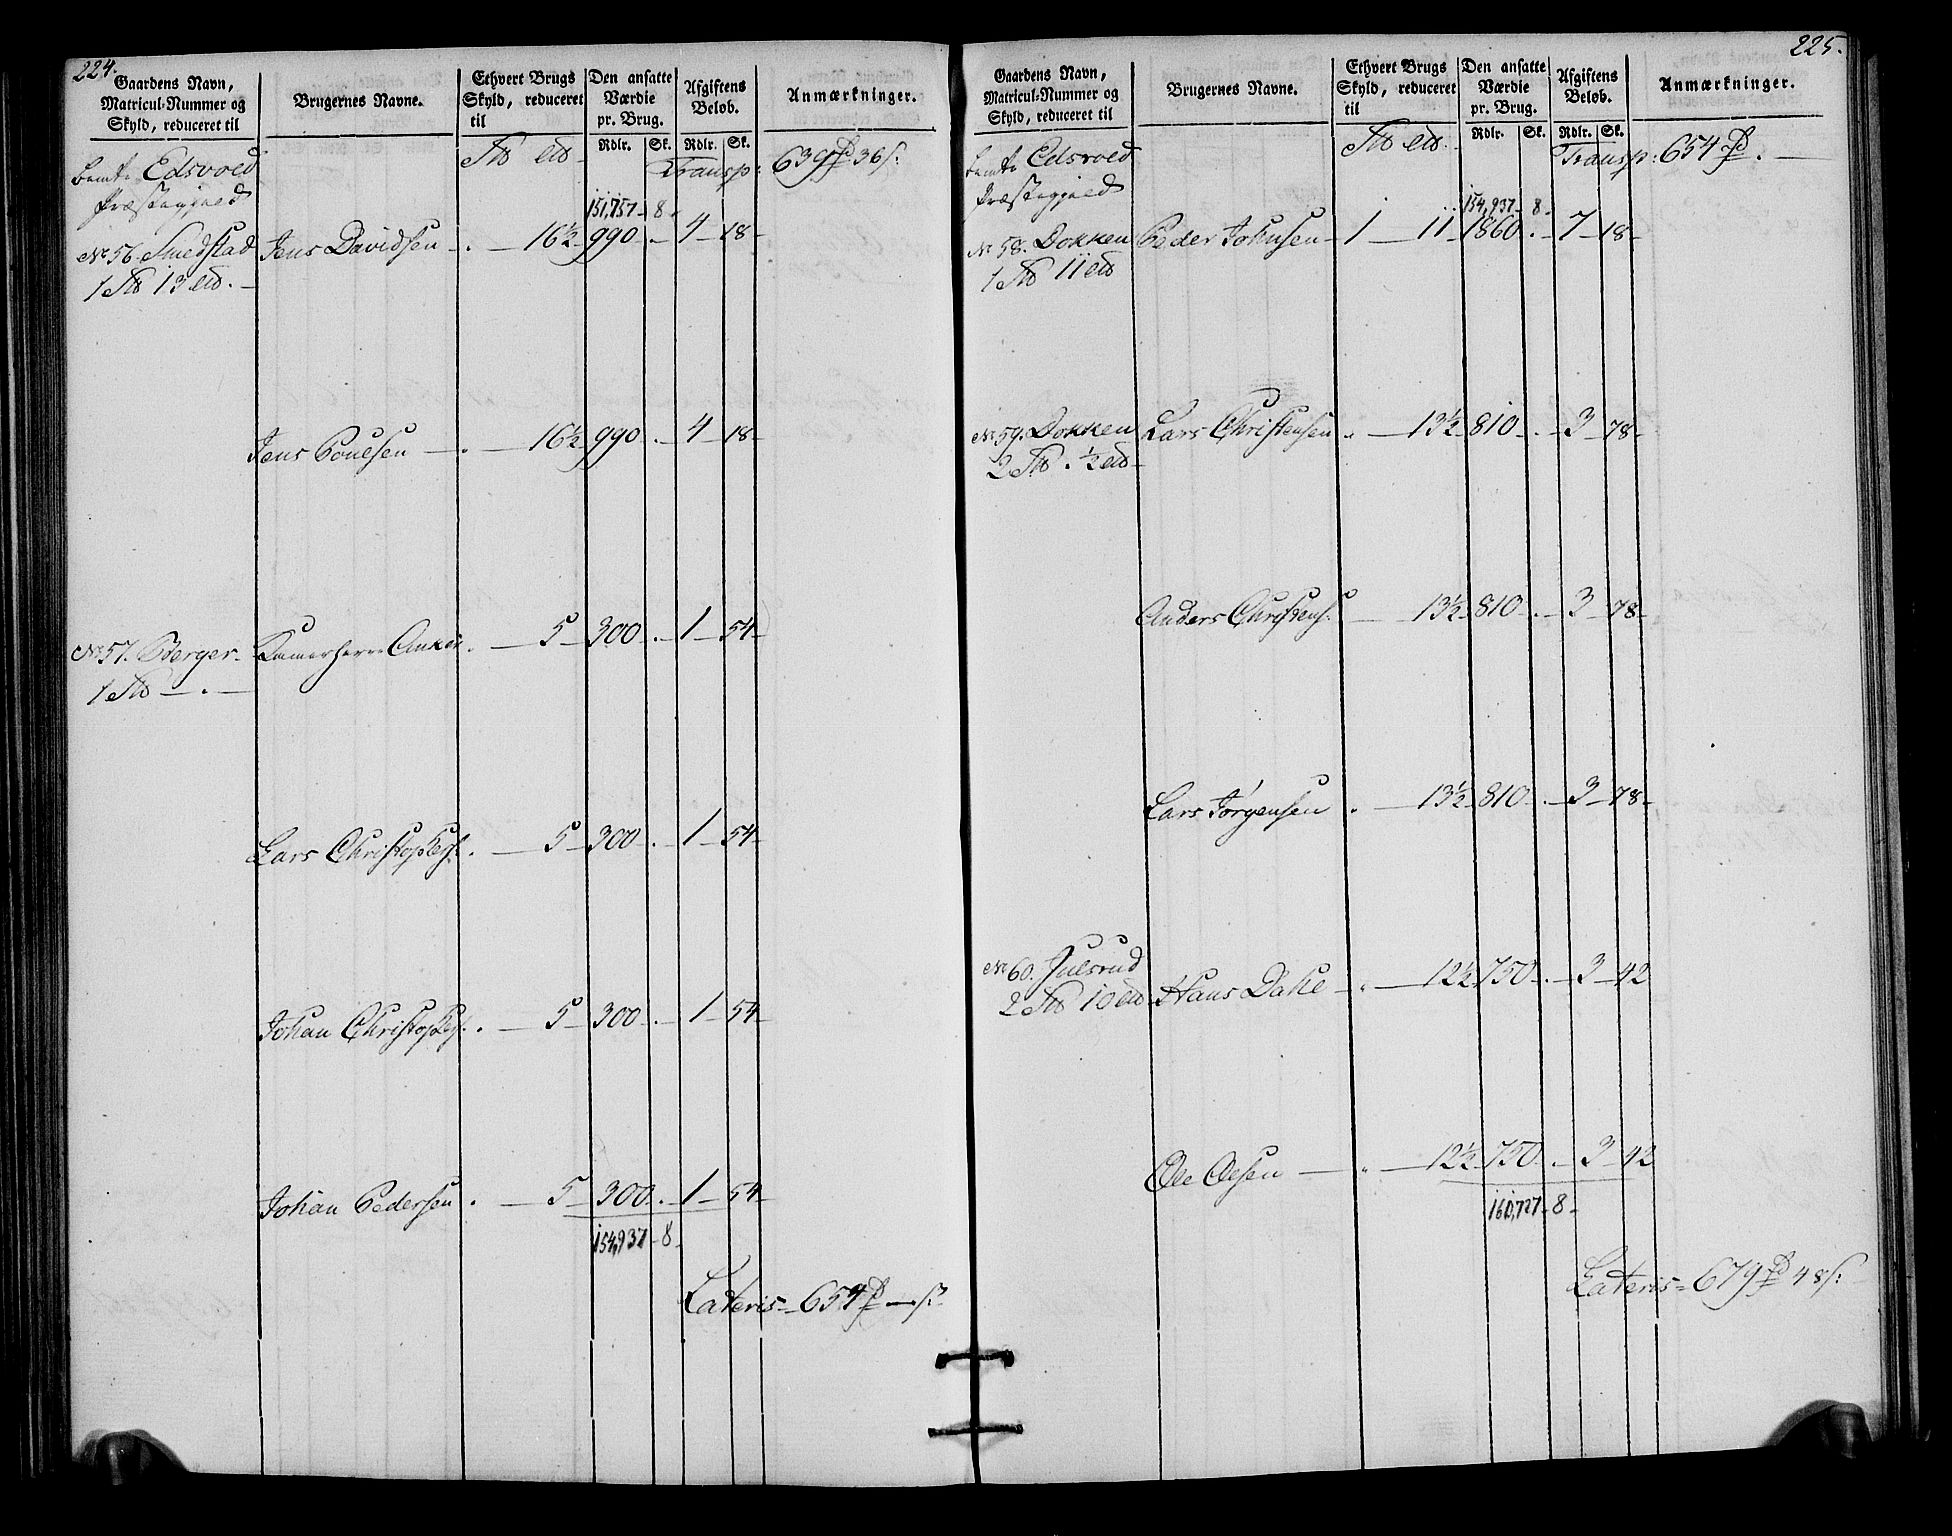 224.
Gaardens Navn, Matricul-Nummer og Skyld, reduceret til
Brugernes Navne.
Ethvert Brugs Skyld, reduceret til
Den ansatte Værdie pr. Brug.
Afgiftens Beløb.
Anmærkninger.
Rdlr. Sk. Rdlr. Sk.
Transp: 639 36 s:
Edsvold
Præstegjeld
151,757 - 8 -
No 56. Smedstad Jens Davidsen - . - 16½ - 990 - . - 4 - 18 -
1 13
Jens Poulsen - . - 16½ - 990 - . - 4 - 18 -
No 57. Berger - Kamerherre Anker . - 5 - 300 - . - 1 - 54 -
1 - . -
Lars Christophers: . - 5 - 300 - . - 1 - 54 -
Johan Christophers: . - 5 - 300 - . - 1 - 54 -
Johan Pedersen . - 5 - 300 - . - 1 - 54 -
154,937 - 8 -
Lateris = 654 - s:
225.
Gaardens Navn, Matricul-Nummer og Skyld, reduceret til
Brugernes Navne.
Ethvert Brugs Skyld, reduceret til
Den ansatte Værdie pr. Brug.
Afgiftens Beløb.
Anmærkninger.
Rdlr. Sk. Rdlr. Sk.
Transp: 654 . -
Edsvold
Præstegjeld
154,937 - 8 -
No 58. Dokken Peder Johnsen - 1 - 11 - 1860 - . - 7 - 18 -
1 11
No 59. Dokken Lars Christensen - . - 13½ - 810 - . - 3 - 78 -
2 . ½
Anders Christens: - 13½ - 810 - . - 3 - 78 -
Lars Jørgensen . - 13½ - 810 - . - 3 - 78 -
No 60. Julsrud Hans Dahl - . - 12½ - 750 - . - 3 - 42
2 10
Ole Olsen - . - 12½ - 750 - . - 3 - 42
160,727 - 8 -
Lateris = 679 48 s: